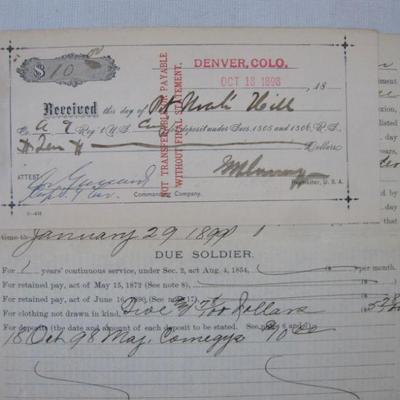 $ 10.00
DENVER, COLO.
OCT 18 1898 18
Received this day of Pvt Noah Hill
Co. A 7 Reg't U.S. Cav for deposit under Secs. 1305 and 1306, R. S.
Ten Dollars
NOT TRANSFERABLE OR PAYABLE
WITHOUT FINAL STATEMENT.
Paymaster, U. S. A.
ATTEST
Capt. 7 Cav. Commanding Company.
January 29 1899
DUE SOLDIER.
For 1 years' continuous service, under Sec. 2, act Aug. 4, 1854, per month.
For retained pay, act of May 15, 1872 (See note 8)
For retained pay, act of June 16, 1890, (See note 17)
For clothing not drawn in kind, Five /100 Dollars
For deposits (the date and amount of each deposit to be stated. See notes 6 and
18 Oct 98 Maj. Comegys 10 00